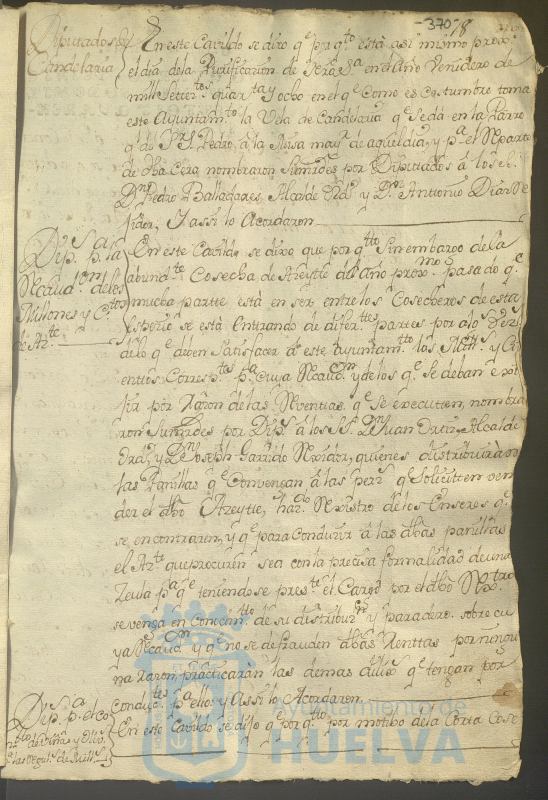 -370- 18
Diputados pª
Candelaria
En este Cavildo se dixo qe por qto está asi mismo proxº
el dia de la Purificacion de Nrâ Sª en el Año venidero de
mill setectos quartª y ocho en el qe como es costumbre toma
este Ayuntamto la Vela de Candelaria qe se dá en la Parro
qª de Sr Sn Pedro, a la Misa mayr de aquel dia, y pª el Reparto
de dha Cera, nombraron sus mrdes por Diputados á los
Dn Pedro Balladares, Alcalde y Dn Antonio Diaz Re
gidor, Y assi lo Acordaron
Dips pª la
Recaudon de los
Millones y
de Azte
En este Cavildo se dixo que por qto sin embargo de la
abundte Cosecha de Azeytte del Año proxmo pasado qe
mucha partte está en ser entre los Cosecheros de esta
se está entrando de diferttes partes por a lo
dico qe deben satisfacer á este Ayuntamto los Mills y
entos Corresptes pª cuya Recauon y de los qe se deban
por Razon de las Reventas qe se executten, nombra
ron sus mrdes por Dips á los SSs Dn Juan Ortiz Alcalde
y Dn Joseph Garrido Rexidor, quienes distribuiran
las Panillas qe Convengan á las pers qe soliciten ven
der el dho Azeytte, harn Rexistro de los Enseres qe
se encontraren, y qe para conducir á las dhas panillas
el Azte que procuren sea con la precisa formalidad de una
Zedula pª qe teniendose preste el Cargo por el dho Rexitro
se venga en Conocimto de su distribuzn y paradero sobre cu
ya Recaudon y qe no se defrauden dhas Renttas por ningu
na razon, practicarán las demas dilixs qe tengan por
conductes pª ello, y Assi lo Acordaron
Dips pª el co
de Viñas y Oliv
En este Cavildo se dijo qe por qto por motibo de la Corta Cose
Ayuntamiento de
HUELVA